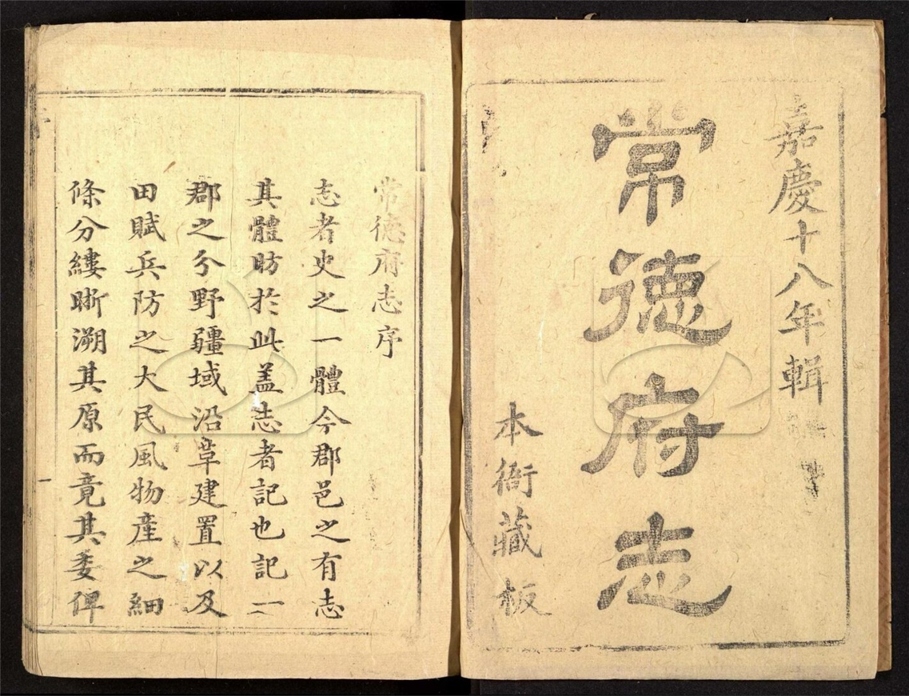 嘉慶十八年輯
常德府志
本衙藏板
常德府志序
志者史之一體今郡邑之有志
其體昉於此盖志者記也記一
郡之分野疆域沿革建置以及
田賦兵防之大民風物産之細
條分縷晰溯其原而竟其委俾